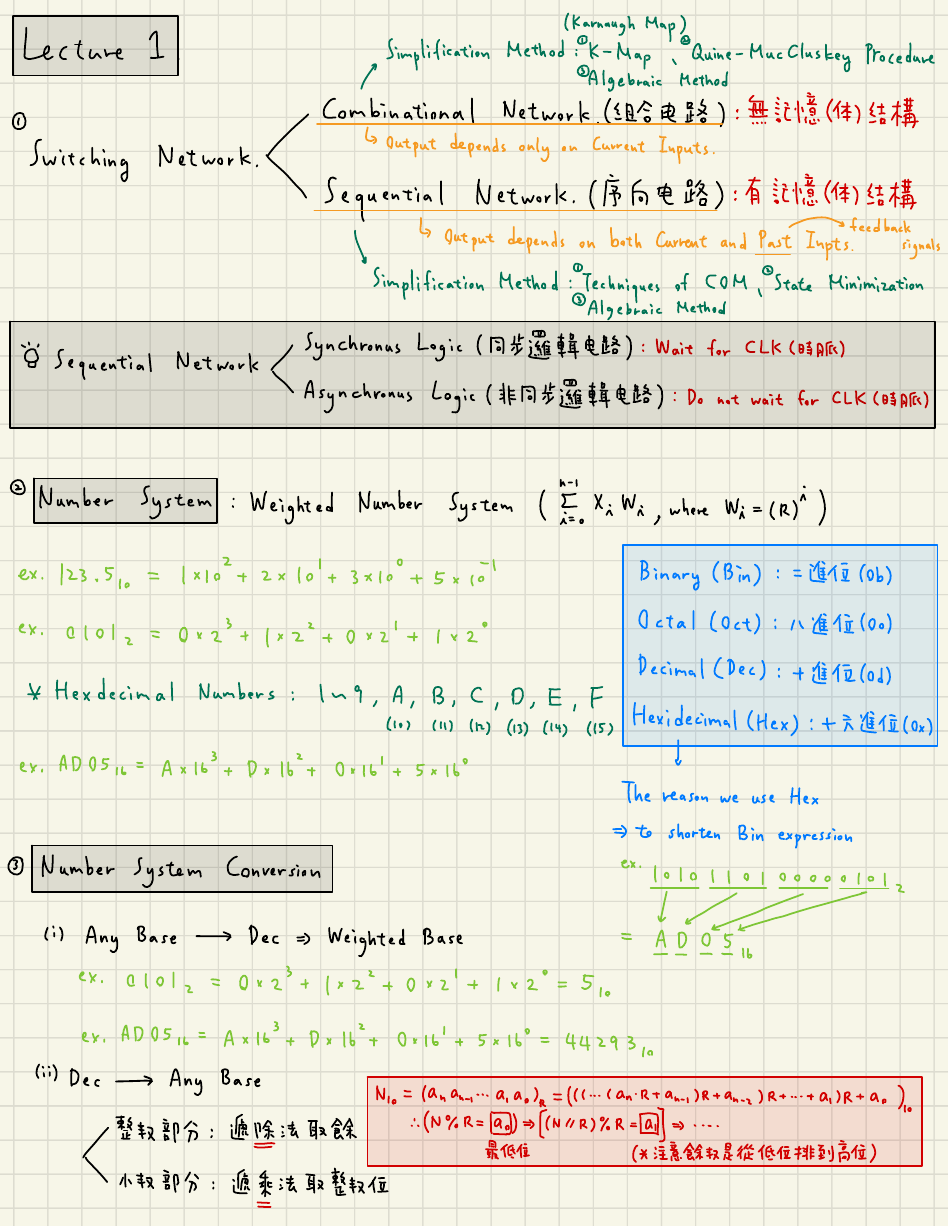 Lecture 1
(Karnaugh Map)
Simplification Method : ① K-Map 、 ② Quine-MucCluskey Procedure
③ Algebraic Method
①
Switching Network.
Combinational Network. (組合电路) : 無記憶(体)結構
↳ Output depends only on Current Inputs.
Sequential Network. (序向电路) : 有記憶(体)結構
↳ Output depends on both Current and Past Inpts. → feedback signals
Simplification Method : ① Techniques of COM 、 ② State Minimization
③ Algebraic Method
Sequential Network
Synchronus Logic (同步邏輯电路) : Wait for CLK (時脈)
Asynchronus Logic (非同步邏輯电路) : Do not wait for CLK (時脈)
② Number System : Weighted Number System ( Σ_{i=0}^{n-1} X_i W_i , where W_i = (R)^i )
ex. 123.5₁₀ = 1×10² + 2×10¹ + 3×10⁰ + 5×10⁻¹
ex. 0101₂ = 0×2³ + 1×2² + 0×2¹ + 1×2⁰
* Hexdecimal Numbers : 1~9, A, B, C, D, E, F
(10) (11) (12) (13) (14) (15)
ex. AD05₁₆ = A×16³ + D×16² + 0×16¹ + 5×16⁰
Binary (Bin) : 二進位 (0b)
Octal (Oct) : 八進位 (0o)
Decimal (Dec) : 十進位 (0d)
Hexidecimal (Hex) : 十六進位 (0x)
The reason we use Hex
⇒ to shorten Bin expression
ex. 1010 1101 0000 0101₂
= A D 0 5₁₆
③ Number System Conversion
(i) Any Base → Dec ⇒ Weighted Base
ex. 0101₂ = 0×2³ + 1×2² + 0×2¹ + 1×2⁰ = 5₁₀
ex. AD05₁₆ = A×16³ + D×16² + 0×16¹ + 5×16⁰ = 44293₁₀
(ii) Dec → Any Base
整数部分 : 遞除法取餘
小数部分 : 遞乘法取整数位
N₁₀ = (aₙ aₙ₋₁ ⋯ a₁ a₀)_R = (((⋯(aₙ·R + aₙ₋₁)R + aₙ₋₂)R + ⋯ + a₁)R + a₀)₁₀
∴ (N % R = a₀) ⇒ [(N // R) % R = a₁] ⇒ ⋯⋯
最低位 (*注意餘数是從低位排到高位)